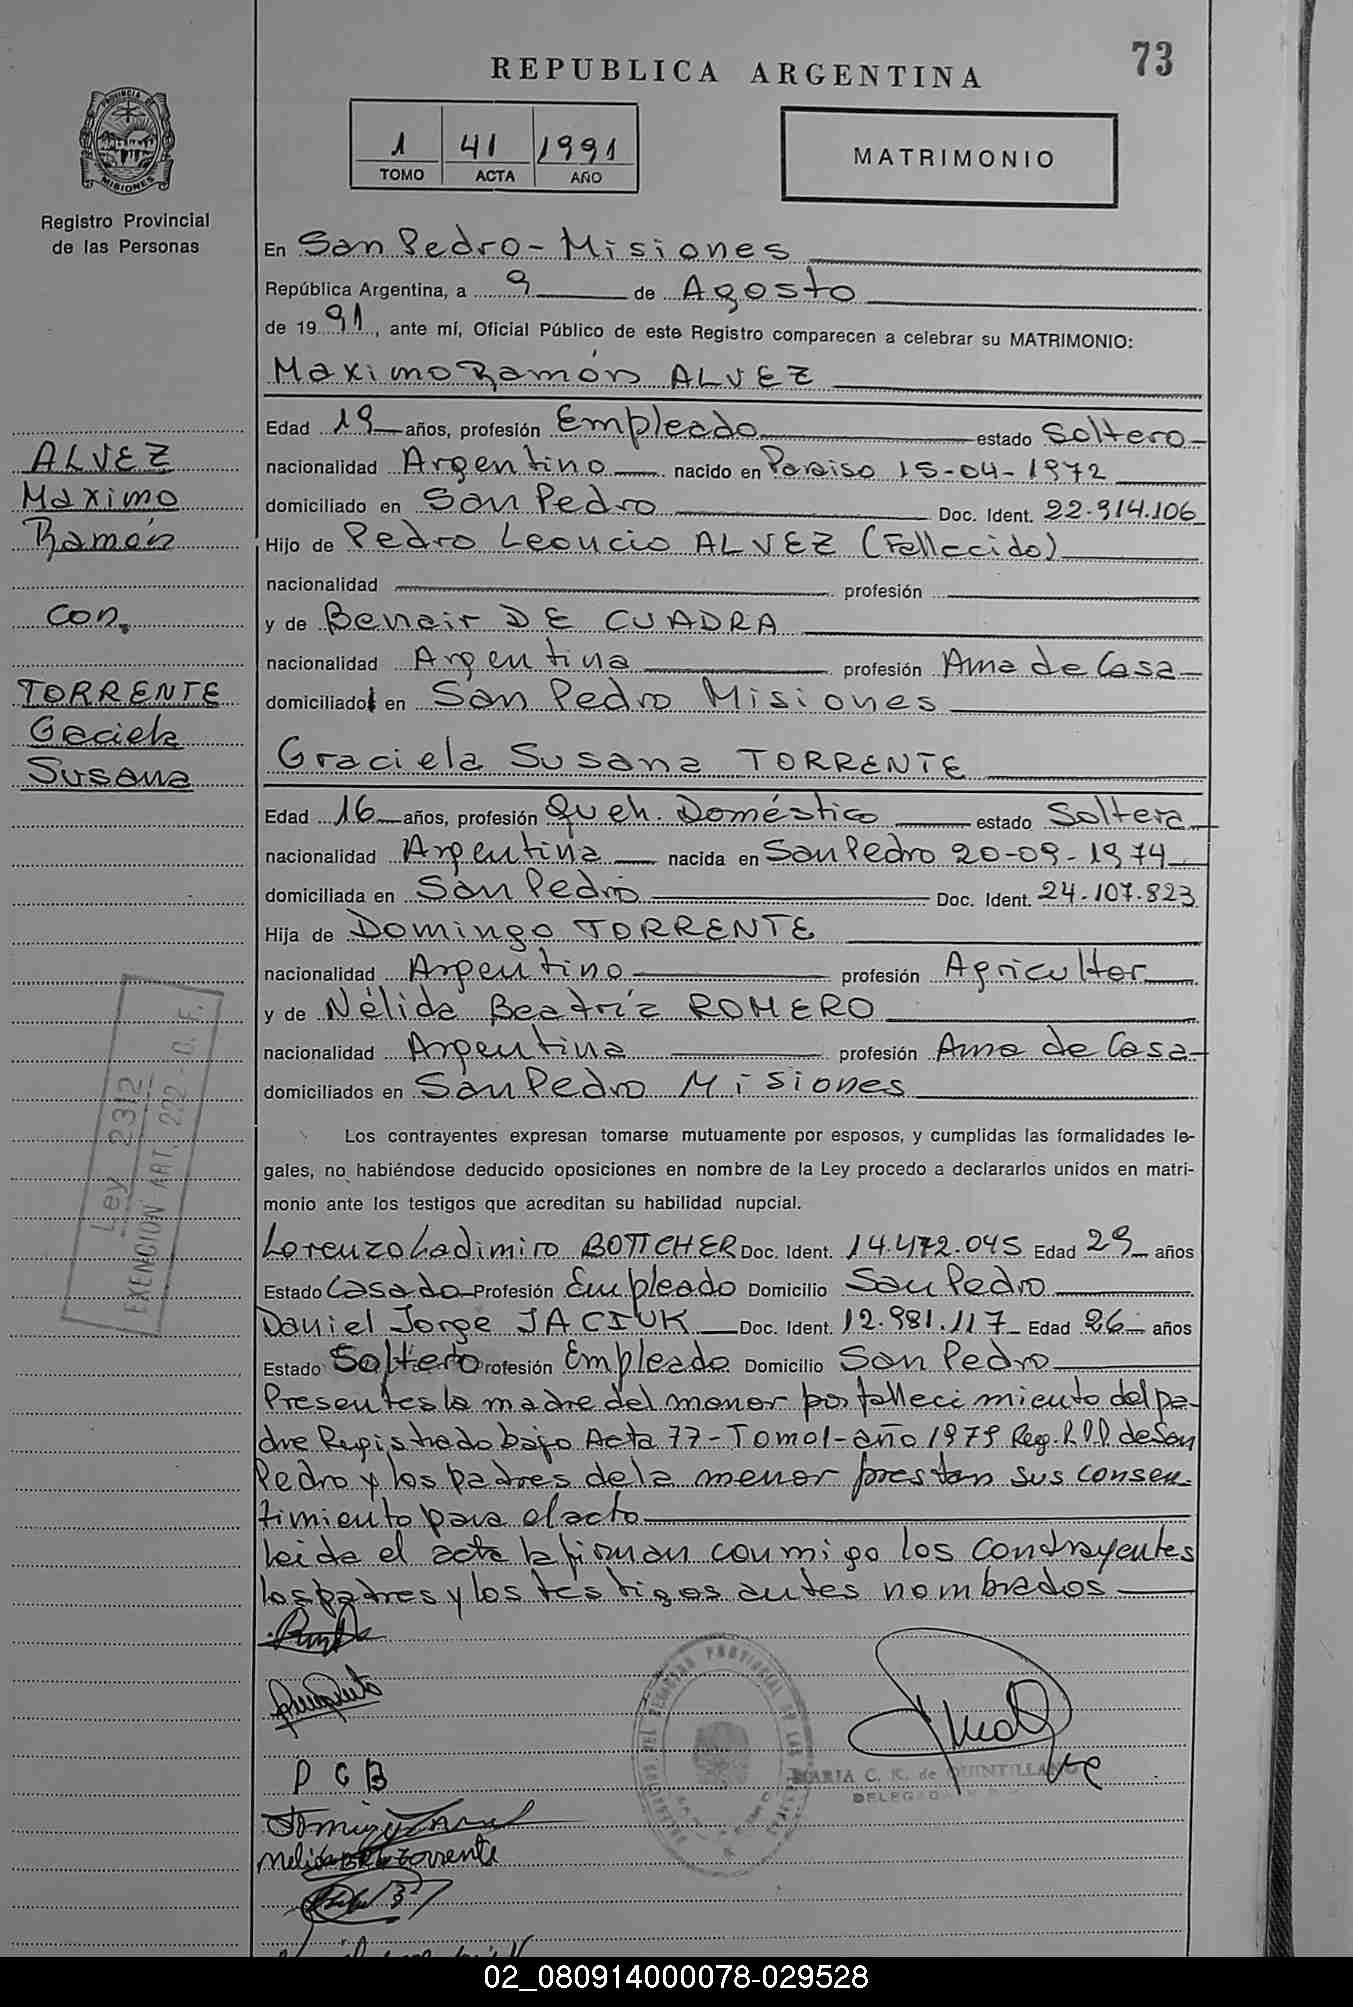 73
REPUBLICA ARGENTINA
PROVINCIA DE MISIONES
Registro Provincial
de las Personas
1 41 1991
TOMO ACTA AÑO
MATRIMONIO
En San Pedro - Misiones
República Argentina, a 9 de Agosto
de 1991, ante mí, Oficial Público de este Registro comparecen a celebrar su MATRIMONIO:
Maximo Ramón ALVEZ
Edad 19 años, profesión Empleado estado Soltero
nacionalidad Argentino nacido en Paraiso 15-04-1972
domiciliado en San Pedro Doc. Ident. 22.914.106
Hijo de Pedro Leoncio ALVEZ (Fallecido)
nacionalidad profesión
y de Benair DE CUADRA
nacionalidad Argentina profesión Ama de Casa
domiciliado en San Pedro Misiones
Graciela Susana TORRENTE
Edad 16 años, profesión Queh. Doméstico estado Soltera
nacionalidad Argentina nacida en San Pedro 20-09-1974
domiciliada en San Pedro Doc. Ident. 24.107.823
Hija de Domingo TORRENTE
nacionalidad Argentino profesión Agricultor
y de Nélida Beatríz ROMERO
nacionalidad Argentina profesión Ama de Casa
domiciliados en San Pedro Misiones
ALVEZ
Maximo
Ramón
con.
TORRENTE
Graciela
Susana
Ley 2312
EXENCION ART. 222 - C. F.
Los contrayentes expresan tomarse mutuamente por esposos, y cumplidas las formalidades le-
gales, no habiéndose deducido oposiciones en nombre de la Ley procedo a declararlos unidos en matri-
monio ante los testigos que acreditan su habilidad nupcial.
Lorenzo Ladimiro BOTTCHER Doc. Ident. 14.472.045 Edad 29 años
Estado Casado Profesión Empleado Domicilio San Pedro
Daniel Jorge JACIUK Doc. Ident. 12.981.117 Edad 26 años
Estado Soltero rofesión Empleado Domicilio San Pedro
Presentes la madre del menor por fallecimiento del pa-
dre Registrado bajo Acta 77-Tomo 1-año 1979 Reg. P.D.P. de San
Pedro y los padres de la menor prestan sus consen-
timiento para el acto
leida el acta la firman conmigo los contrayentes
los padres y los testigos antes nombrados
P C B
Torrente
MARIA C. K. de QUINTILLAN
DELEGADA
02_080914000078-029528